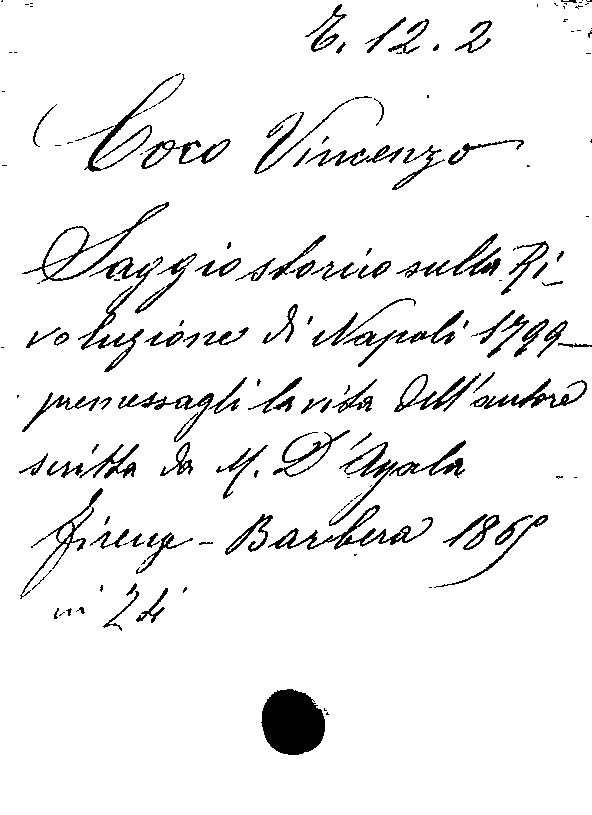 E. 12. 2
Coco Vincenzo
Saggio storico sulla Ri-
voluzione di Napoli 1799 -
premessagli la vita dell'autore
scritta da M. D'Ayala
Firenze - Barbera 1865
in